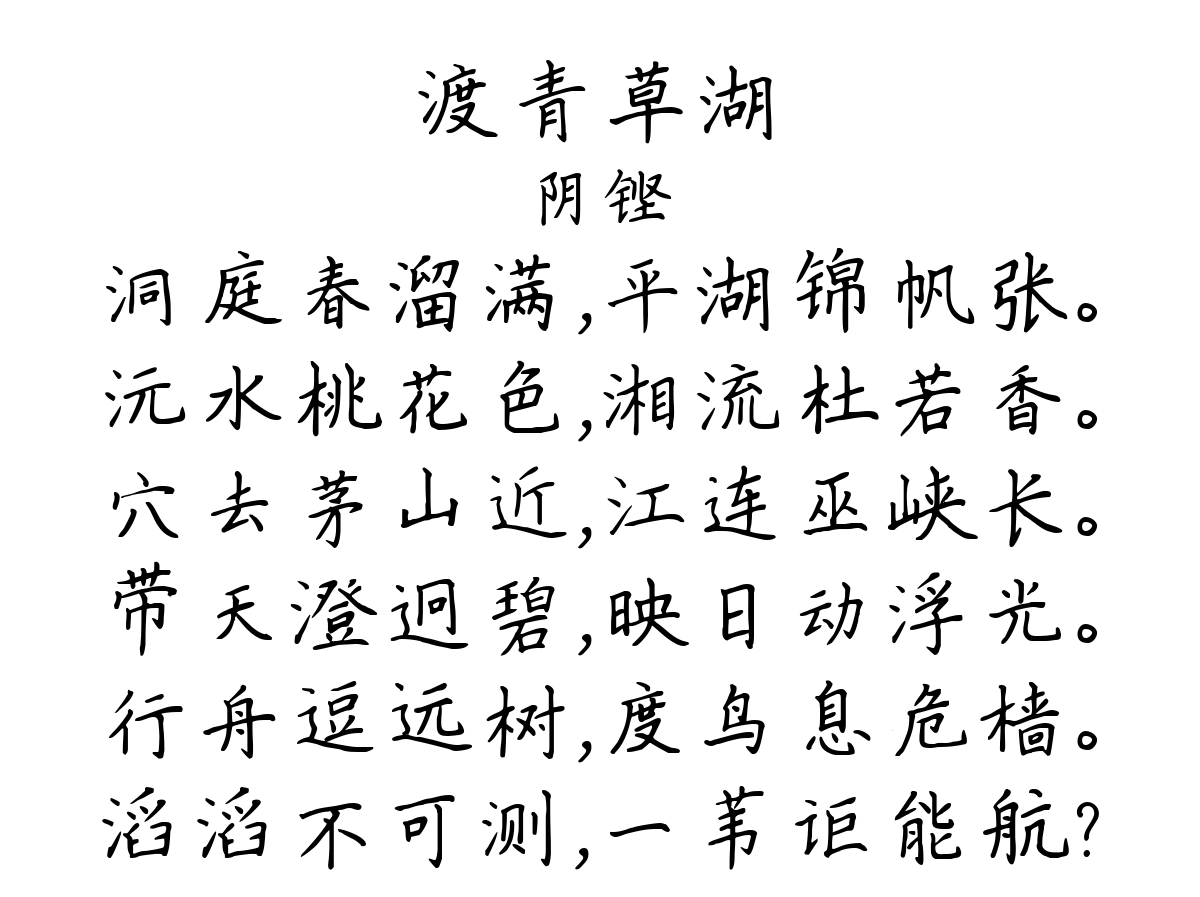 渡青草湖
阴铿
洞庭春溜满,平湖锦帆张。
沅水桃花色,湘流杜若香。
穴去茅山近,江连巫峡长。
带天澄迥碧,映日动浮光。
行舟逗远树,度鸟息危樯。
滔滔不可测,一苇讵能航?